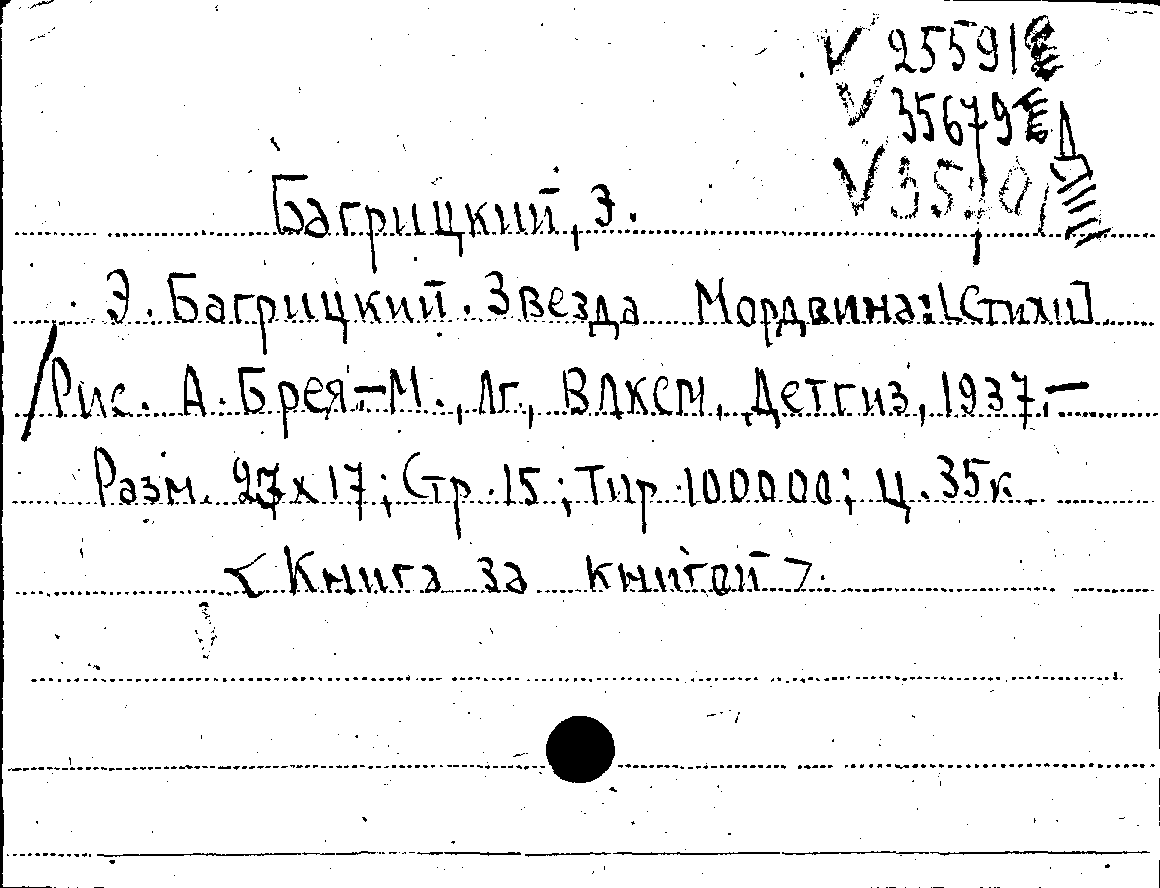 V 25591
V 35679
V
Багрицкий, Э.
Э. Багрицкий. Звезда Мордвина: [Стихи]
/Рис. А. Брея.-М., Лг., ВЛКСМ, Детгиз, 1937.-
Разм. 23x17; Стр. 15; Тир. 100000; Ц. 35к.
<Книга за книгой>.